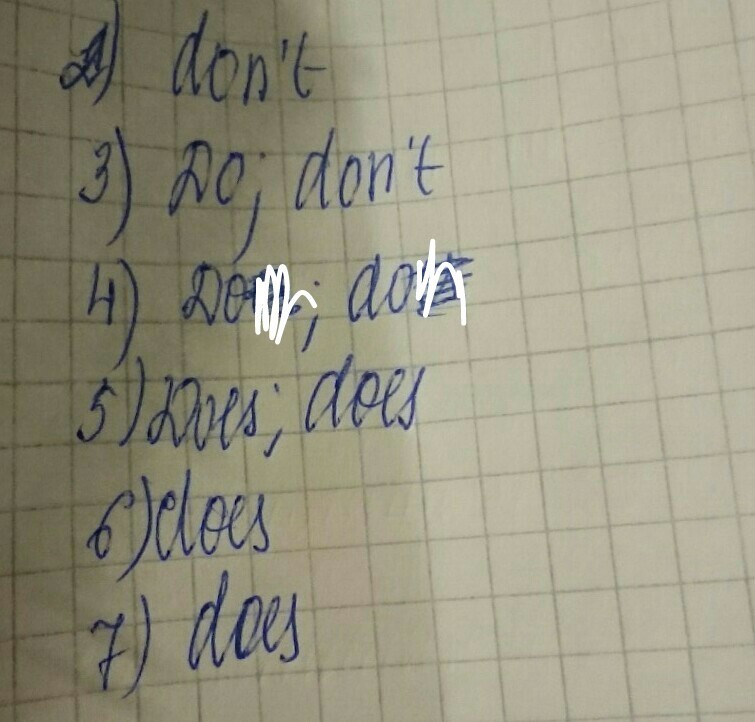 2) don't
3) Do; don't
4) Do; do
5) Does; does
6) does
7) does